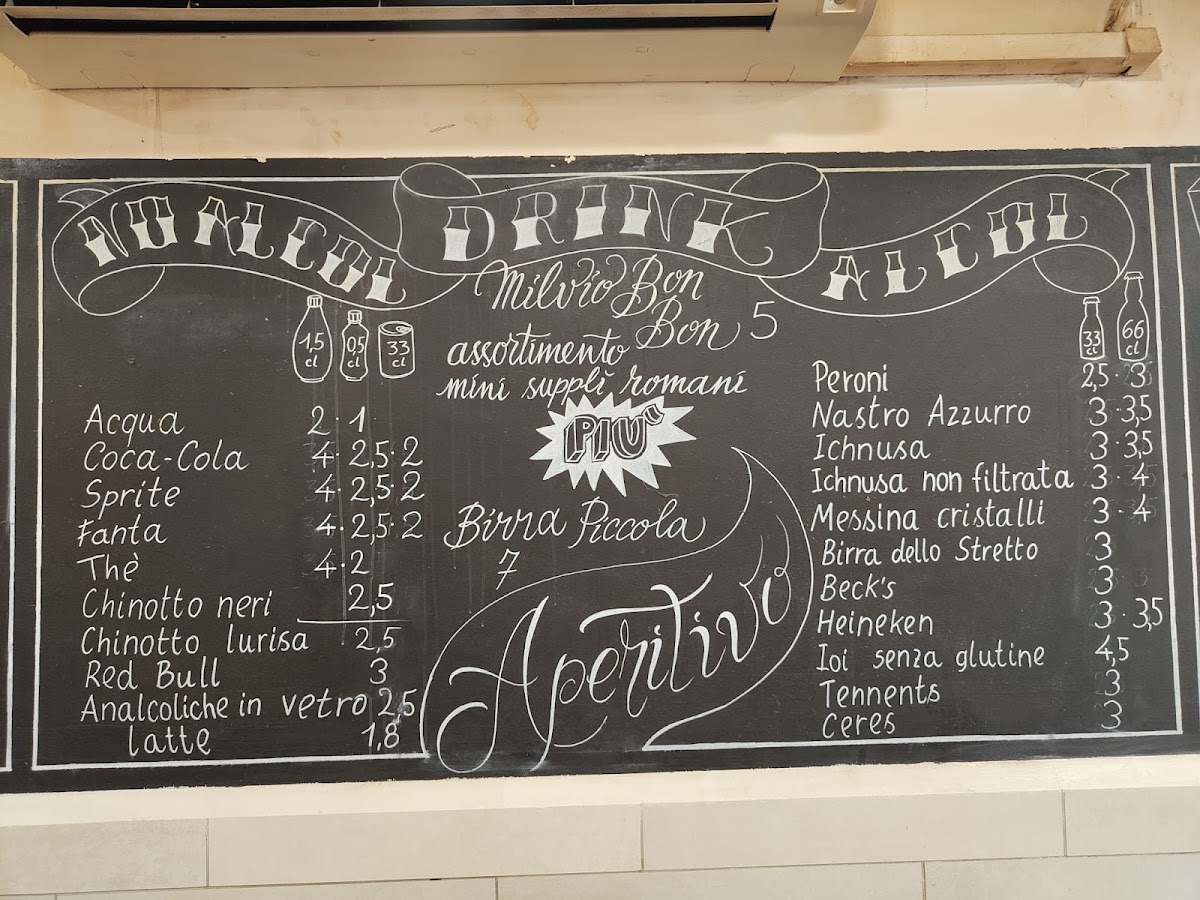 NO ALCOL
1,5 cl
0,5 cl
33 cl
Acqua 2 · 1
Coca-Cola 4 · 2,5 · 2
Sprite 4 · 2,5 · 2
Fanta 4 · 2,5 · 2
Thè 4 · 2
Chinotto neri 2,5
Chinotto lurisa 2,5
Red Bull 3
Analcoliche in vetro 2,5
latte 1,8
DRINK
Milvio Bon
Bon 5
assortimento
mini supplì romani
PIU'
Birra Piccola
7
Aperitivo
ALCOL
33 cl
66 cl
Peroni 2,5 · 3
Nastro Azzurro 3 · 3,5
Ichnusa 3 · 3,5
Ichnusa non filtrata 3 · 4
Messina cristalli 3 · 4
Birra dello Stretto 3
Beck's 3
Heineken 3 · 3,5
Ioi senza glutine 4,5
Tennents 3
Ceres 3